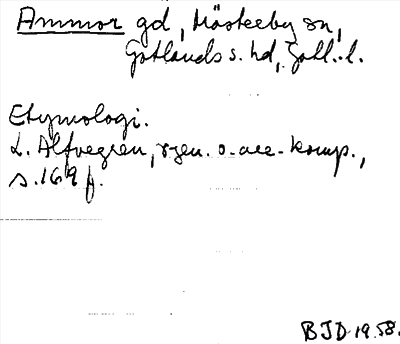 Ammor gd, Mästerby sn,
Gotlands s. hd, Gotl. l.
Etymologi.
L. Alfvegren, r-gen. o. ack-komp.,
s. 169 f.
BJD 1958.